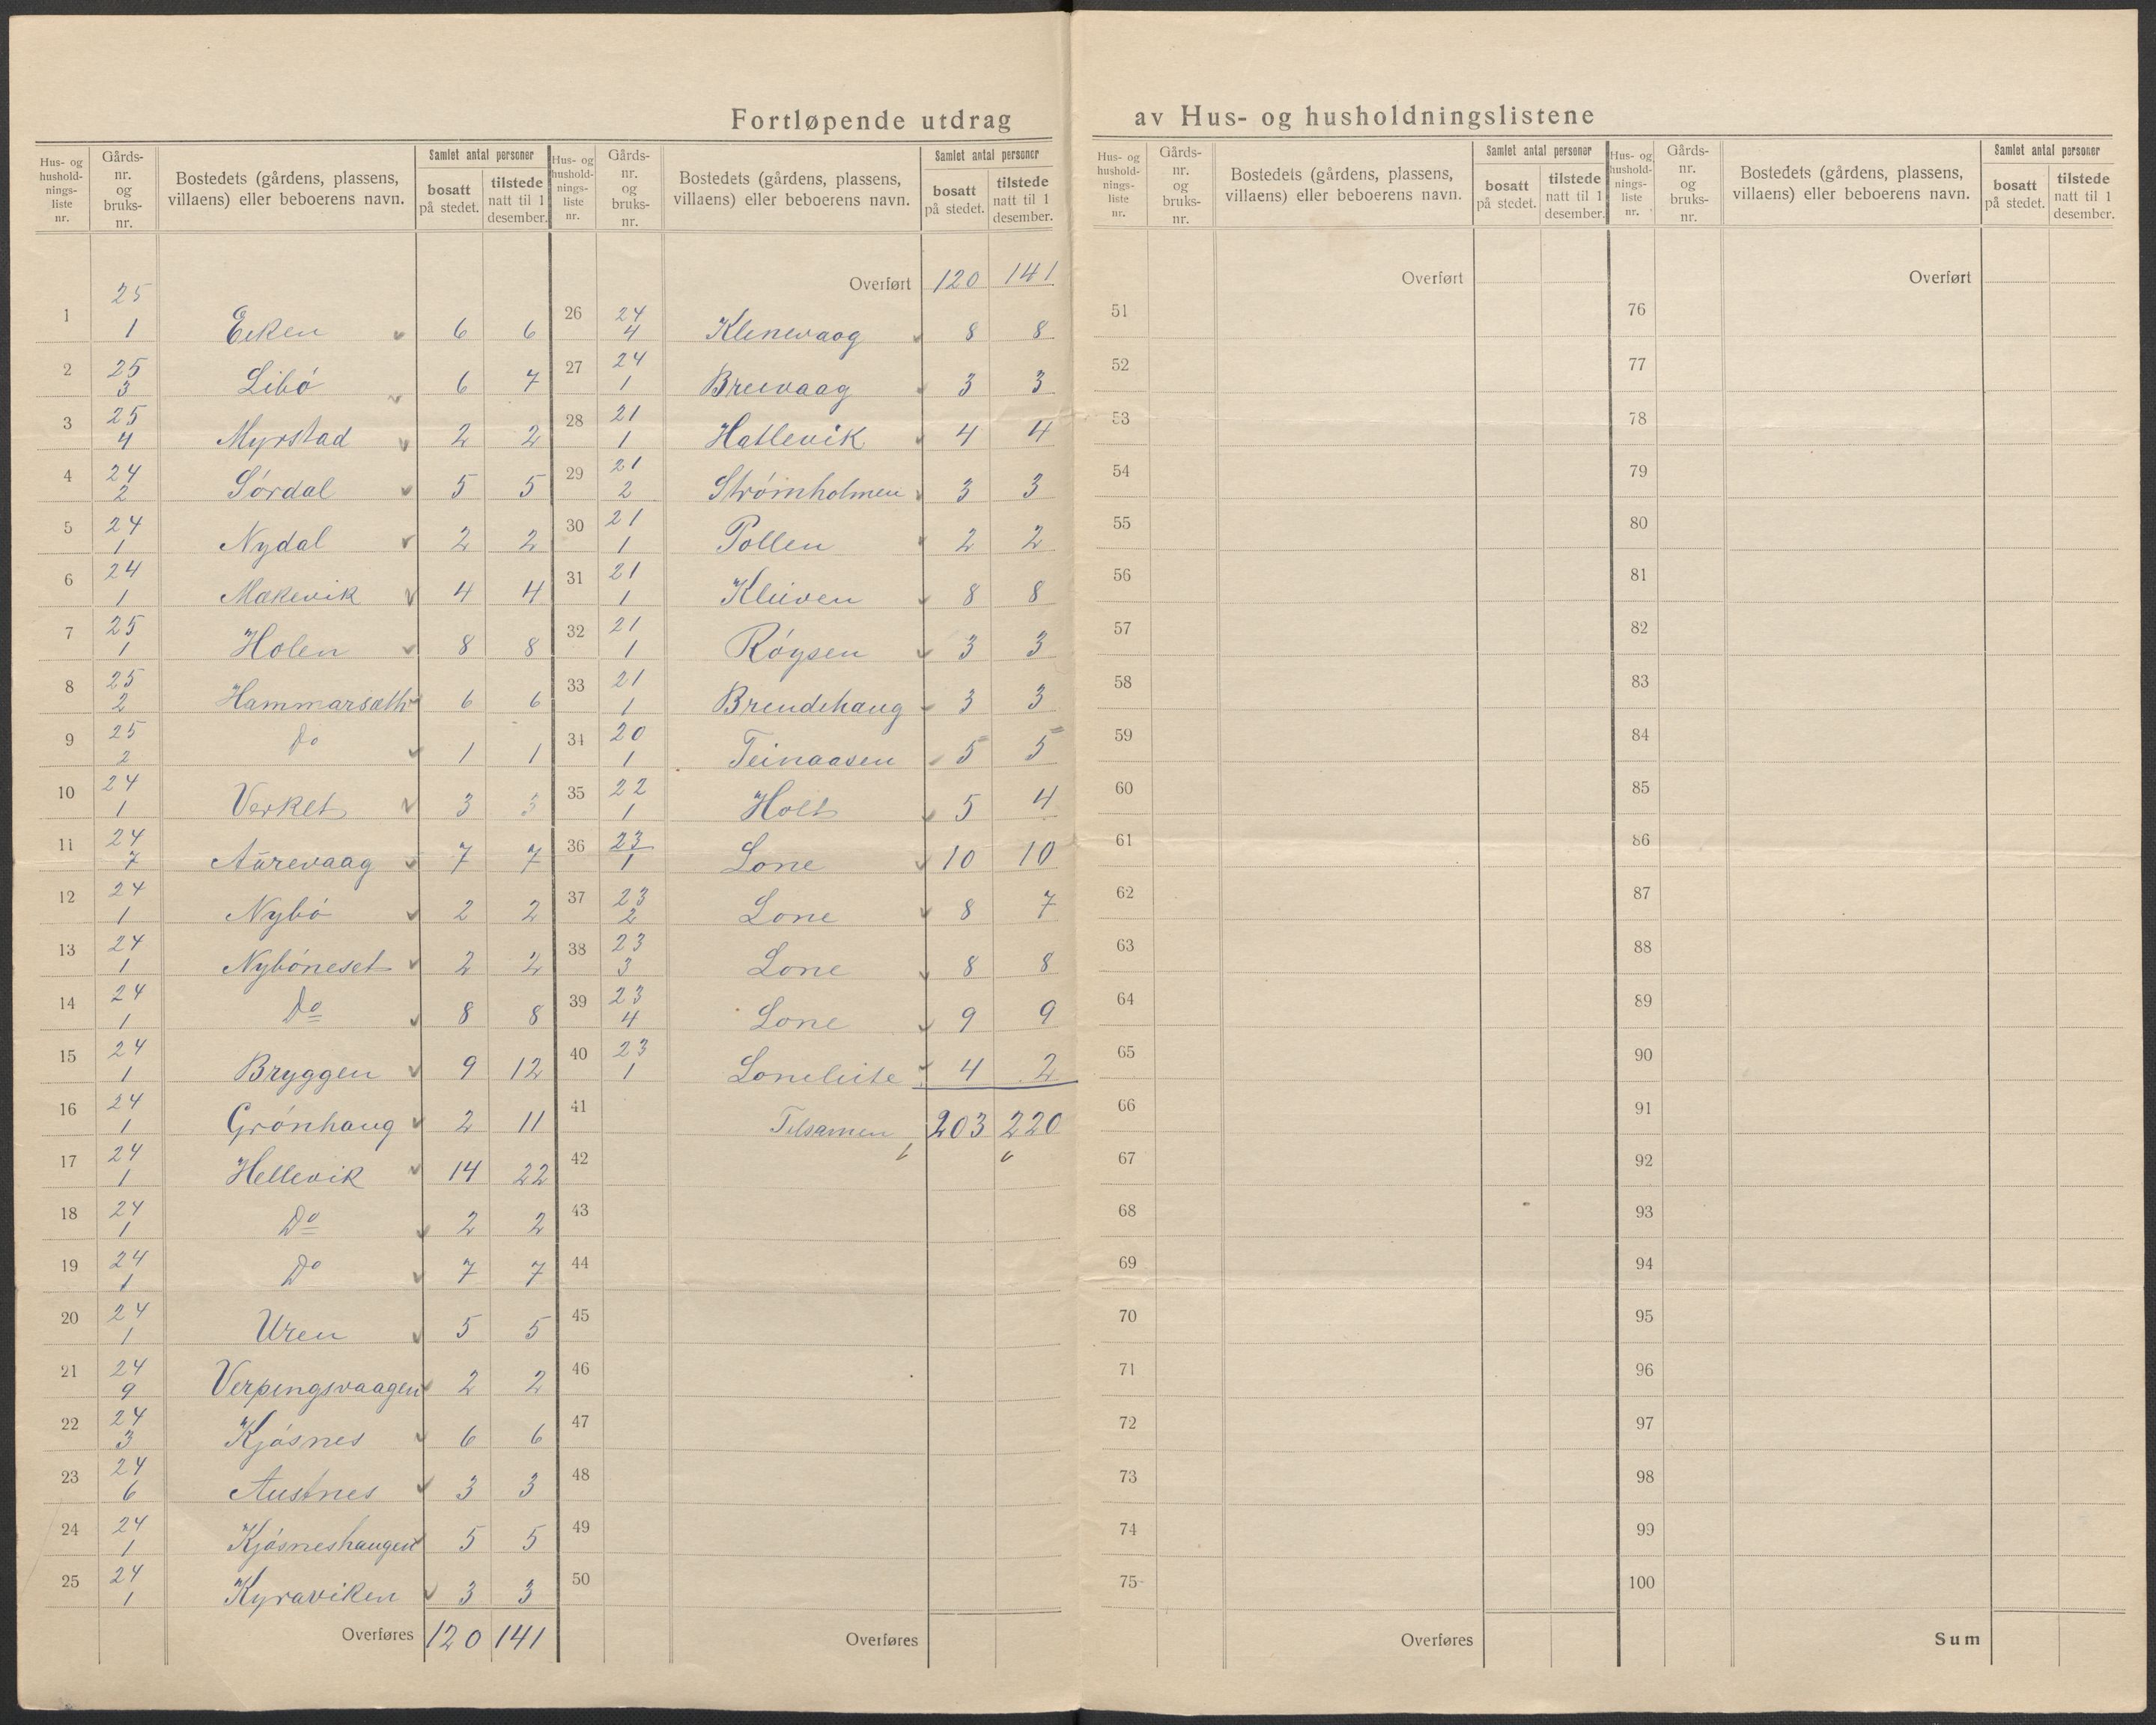 Fortløpende utdrag av Hus- og husholdningslistene
Hus- og hushold- nings- liste nr. | Gårds- nr. og bruks- nr. | Bostedets (gårdens, plassens, villaens) eller beboerens navn. | Samlet antal personer | bosatt på stedet. | tilstede natt til 1 desember.
1 | 25 1 | Eiken | 6 | 6
2 | 25 3 | Libó | 6 | 7
3 | 25 4 | Myrstad | 2 | 2
4 | 24 2 | Sórdal | 5 | 5
5 | 24 1 | Nydal | 2 | 2
6 | 24 1 | Makevik | 4 | 4
7 | 25 1 | Holen | 8 | 8
8 | 25 2 | Hammarsæth | 6 | 6
9 | 25 2 | Do | 1 | 1
10 | 24 1 | Verket | 3 | 3
11 | 24 7 | Aurevaag | 7 | 7
12 | 24 1 | Nybó | 2 | 2
13 | 24 1 | Nybóneset | 2 | 2
14 | 24 1 | Do | 8 | 8
15 | 24 1 | Bryggen | 9 | 12
16 | 24 1 | Grónhaug | 2 | 11
17 | 24 1 | Hellevik | 14 | 22
18 | 24 1 | Do | 2 | 2
19 | 24 1 | Do | 7 | 7
20 | 24 1 | Uren | 5 | 5
21 | 24 9 | Verpingsvaagen | 2 | 2
22 | 24 3 | Kjósnes | 6 | 6
23 | 24 6 | Austnes | 3 | 3
24 | 24 1 | Kjósneshaugen | 5 | 5
25 | 24 1 | Kyraviken | 3 | 3
Overføres 120 141
Hus- og hushold- nings- liste nr. | Gårds- nr. og bruks- nr. | Bostedets (gårdens, plassens, villaens) eller beboerens navn. | Samlet antal personer | bosatt på stedet. | tilstede natt til 1 desember.
Overført 120 141
26 | 24 4 | Klenevaag | 8 | 8
27 | 24 1 | Breivaag | 3 | 3
28 | 21 1 | Hatlevik | 4 | 4
29 | 21 2 | Strómholmen | 3 | 3
30 | 21 1 | Pollen | 2 | 2
31 | 21 1 | Kleiven | 8 | 8
32 | 21 1 | Róysen | 3 | 3
33 | 21 1 | Brendehaug | 3 | 3
34 | 20 1 | Teinaasen | 5 | 5
35 | 22 1 | Holt | 5 | 4
36 | 23 1 | Lone | 10 | 10
37 | 23 2 | Lone | 8 | 7
38 | 23 3 | Lone | 8 | 8
39 | 23 4 | Lone | 9 | 9
40 | 23 1 | Loneleite | 4 | 2
41 | Tilsamen | 203 | 220
42
43
44
45
46
47
48
49
50
Overføres
Hus- og hushold- nings- liste nr. | Gårds- nr. og bruks- nr. | Bostedets (gårdens, plassens, villaens) eller beboerens navn. | Samlet antal personer | bosatt på stedet. | tilstede natt til 1 desember.
Overført
51
52
53
54
55
56
57
58
59
60
61
62
63
64
65
66
67
68
69
70
71
72
73
74
75
Overføres
Hus- og hushold- nings- liste nr. | Gårds- nr. og bruks- nr. | Bostedets (gårdens, plassens, villaens) eller beboerens navn. | Samlet antal personer | bosatt på stedet. | tilstede natt til 1 desember.
Overført
76
77
78
79
80
81
82
83
84
85
86
87
88
89
90
91
92
93
94
95
96
97
98
99
100
Sum